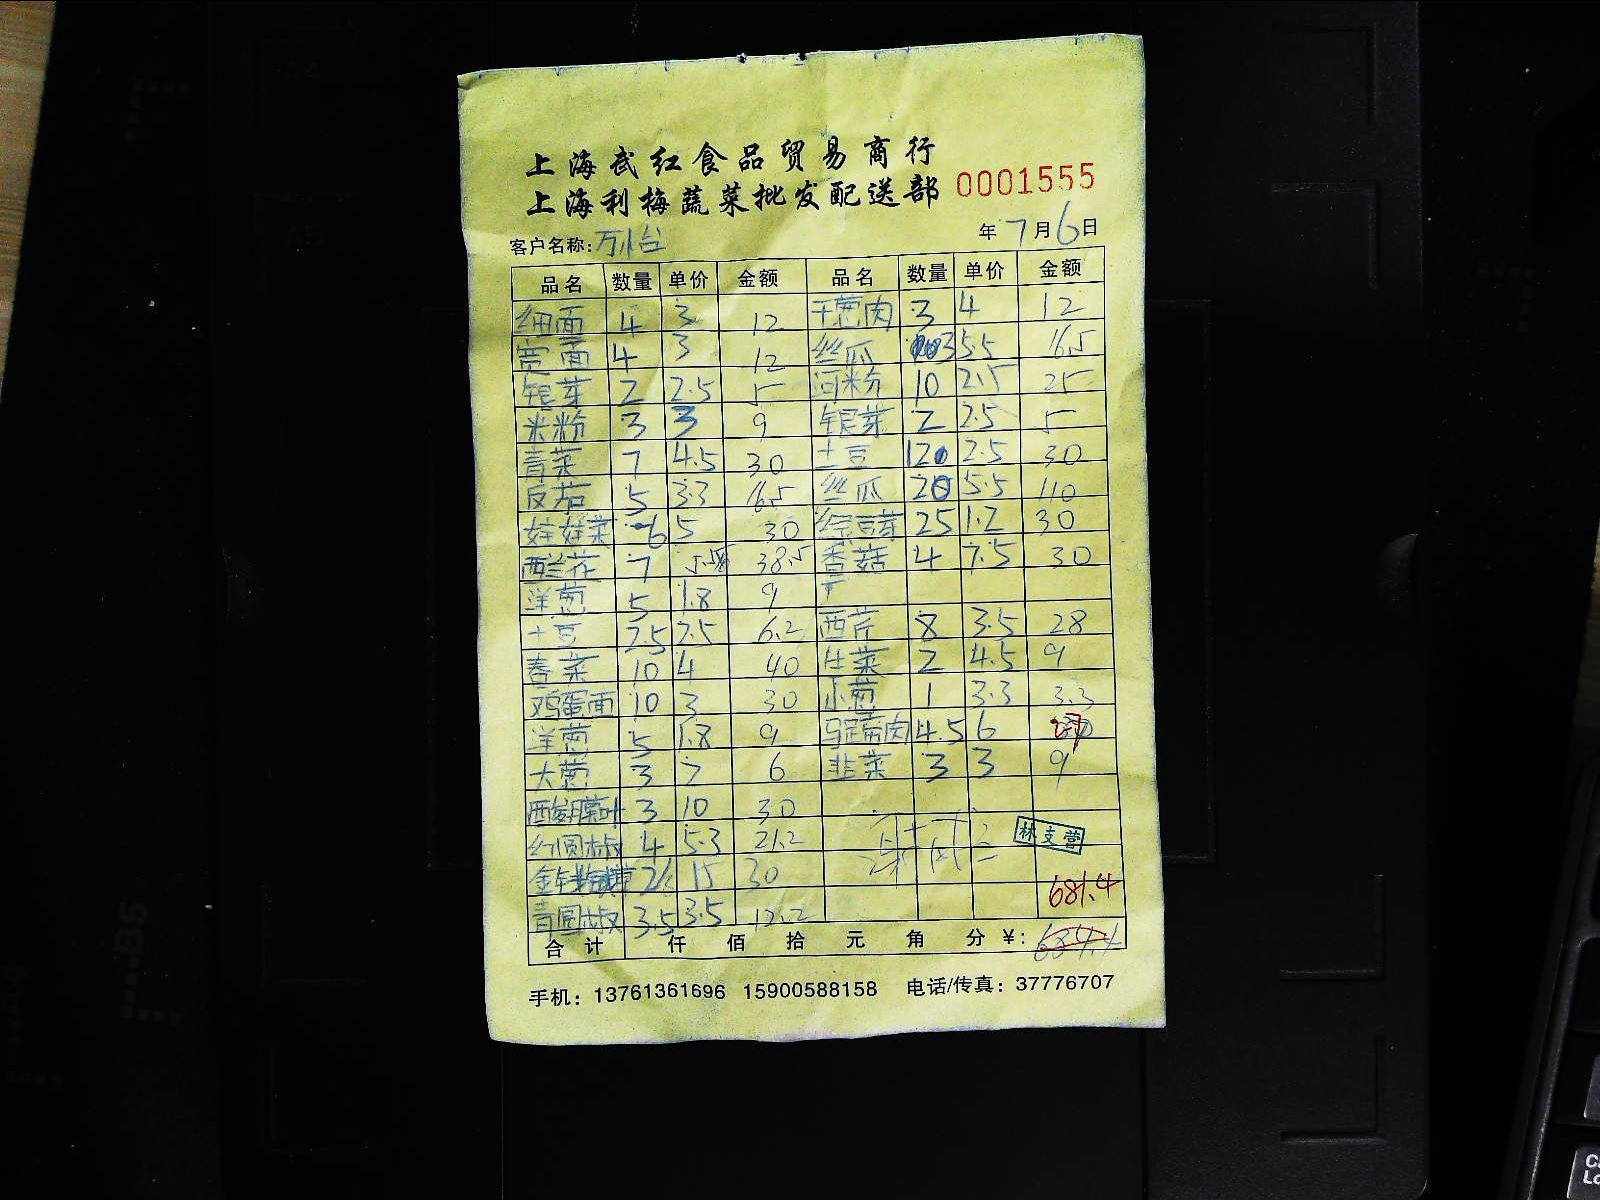 上海武红食品贸易商行
上海利梅蔬菜批发配送部 0001555
客户名称: 年 7 月 6 日
品名 数量 单价 金额 品名 数量 单价 金额
细面 4 3 12 干葱肉 3 4 12
宽面 4 3 12 丝瓜 3 5.5 16.5
银芽 2 2.5 5 河粉 10 2.5 25
米粉 3 3 9 银芽 2 2.5 5
青菜 7 4.5 30 土豆 12 2.5 30
反茄 5 3.3 16.5 丝瓜 20 5.5 110
娃娃菜 6 5 30 绿豆芽 25 1.2 30
西兰花 7 5.5 38.5 香菇 4 7.5 30
洋葱 5 1.8 9
土豆 2.5 2.5 6.2 西芹 8 3.5 28
春菜 10 4 40 生菜 2 4.5 9
鸡蛋面 10 3 30 小葱 1 3.3 3.3
洋葱 5 1.8 9 马蹄肉 4.5 6 27
大葱 3 2 6 韭菜 3 3 9
酸菜叶 3 10 30
红圆椒 4 5.3 21.2 林支营
2 15 30 681.4
青圆椒 3.5 3.5 12.2
合计 仟 佰 拾 元 角 分 ¥: 684.4
手机: 13761361696 15900588158 电话/传真: 37776707